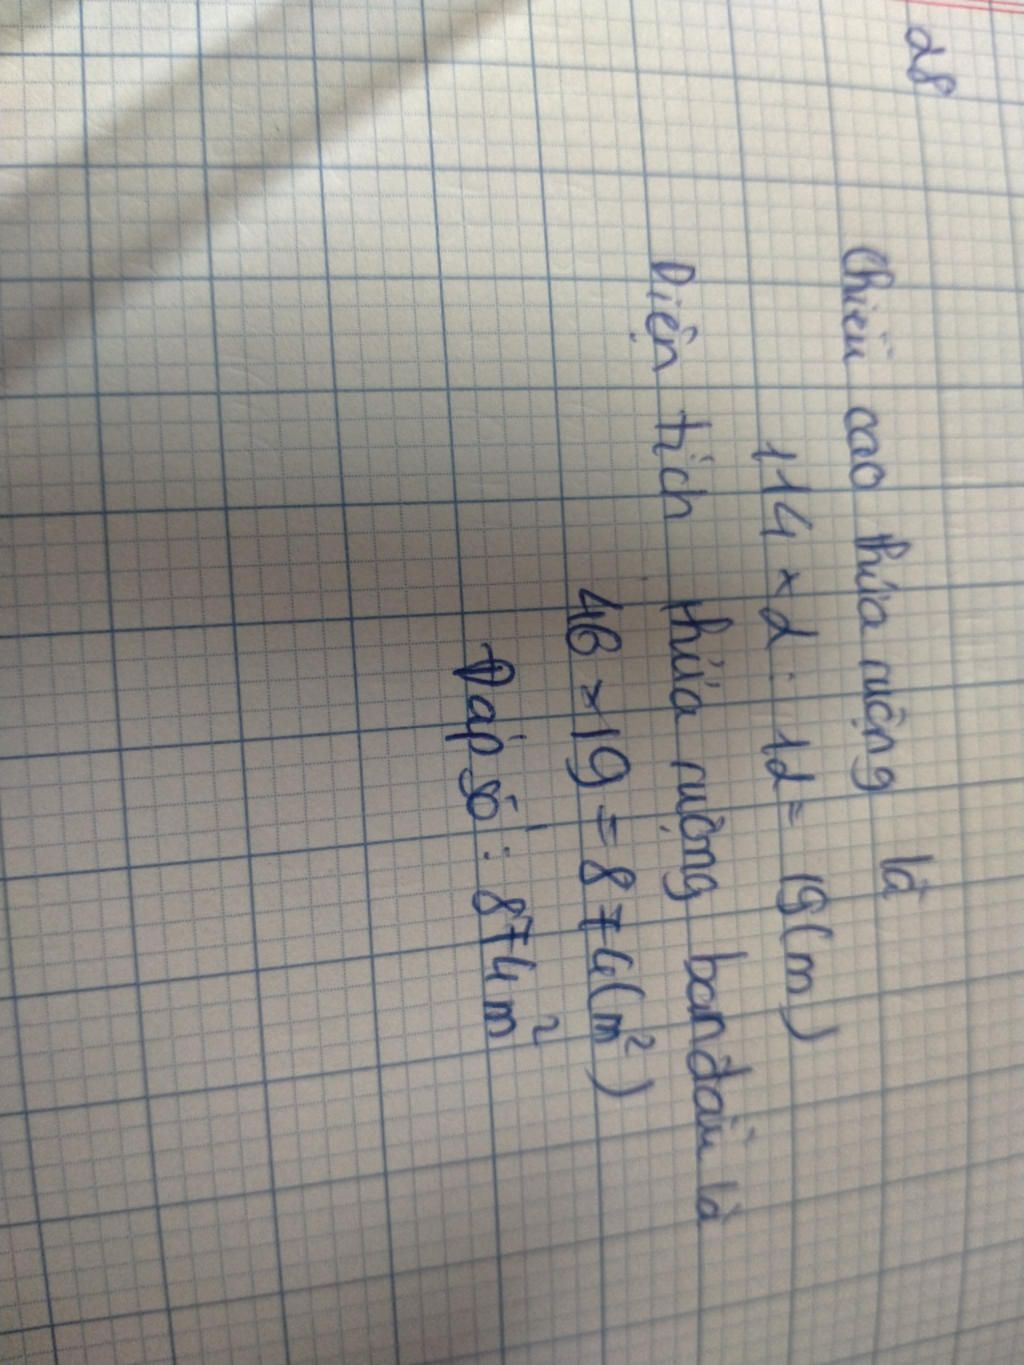 28
Chiều cao thửa ruộng là
114 × 2 : 12 = 19 (m)
Diện tích thửa ruộng ban đầu là
46 × 19 = 874 (m²)
Đáp số : 874 m²